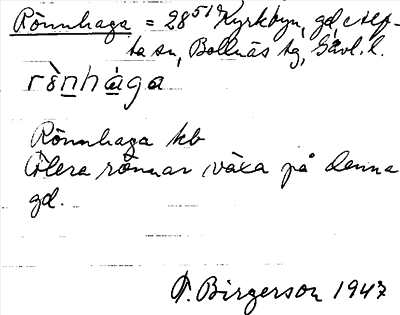 Rönnhaga = 28⁵¹ Kyrkbyn, gd, Alf-
ta sn, Bollnäs tg, Gävl. l.
rènhàga
Rönnhaga kb
Flera rönnar växa på denna
gd.
P. Birgerson 1947